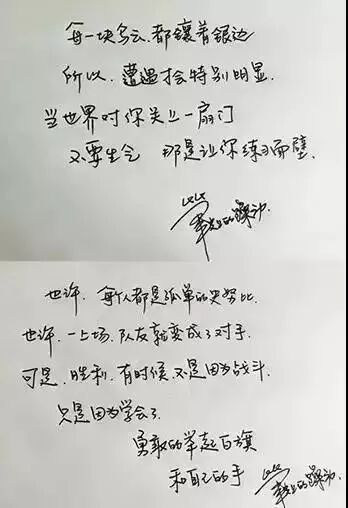 每一块乌云.都镶着银边
所以.遭遇才会特别明显.
当世界对你关上一扇门
不要生气 那是让你练习面壁.
上的躁动.
也许.每个人都是孤单的史努比.
也许.一上场.队友就变成了对手.
可是.胜利.有时候.不是因为战斗.
只是因为学会了
勇敢的举起白旗
和自己的手
上的躁动.